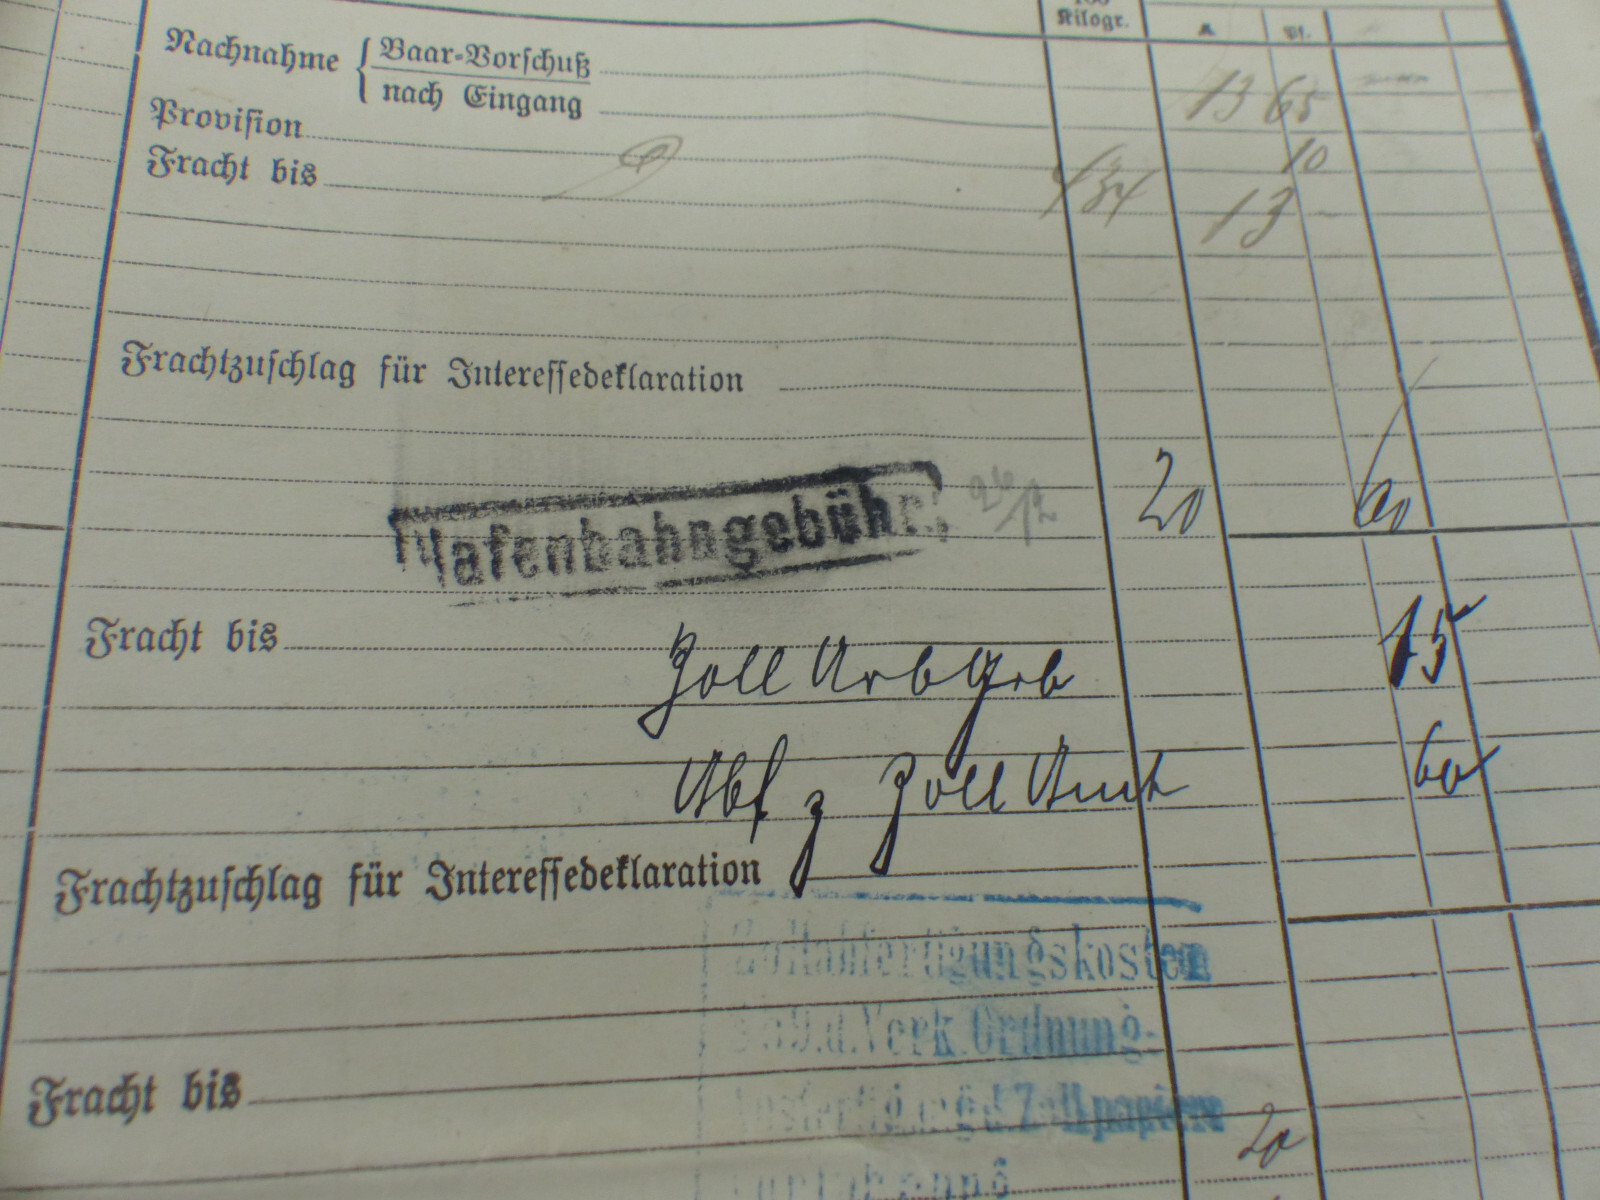 Kilogr.
Nachnahme { Baar-Vorschuß 13 65
nach Eingang
Provision 10
Fracht bis 434 13 -
Frachtzuschlag für Interessedeklaration
Hafenbahngebühr. 20 60
Fracht bis
Zoll Arb Geb 15
Abf z Zoll Amt 60
Frachtzuschlag für Interessedeklaration
Zollabfertigungskosten
§ 59.d.Verk.Ordnung.
Fracht bis
d. Zollpapiere
20